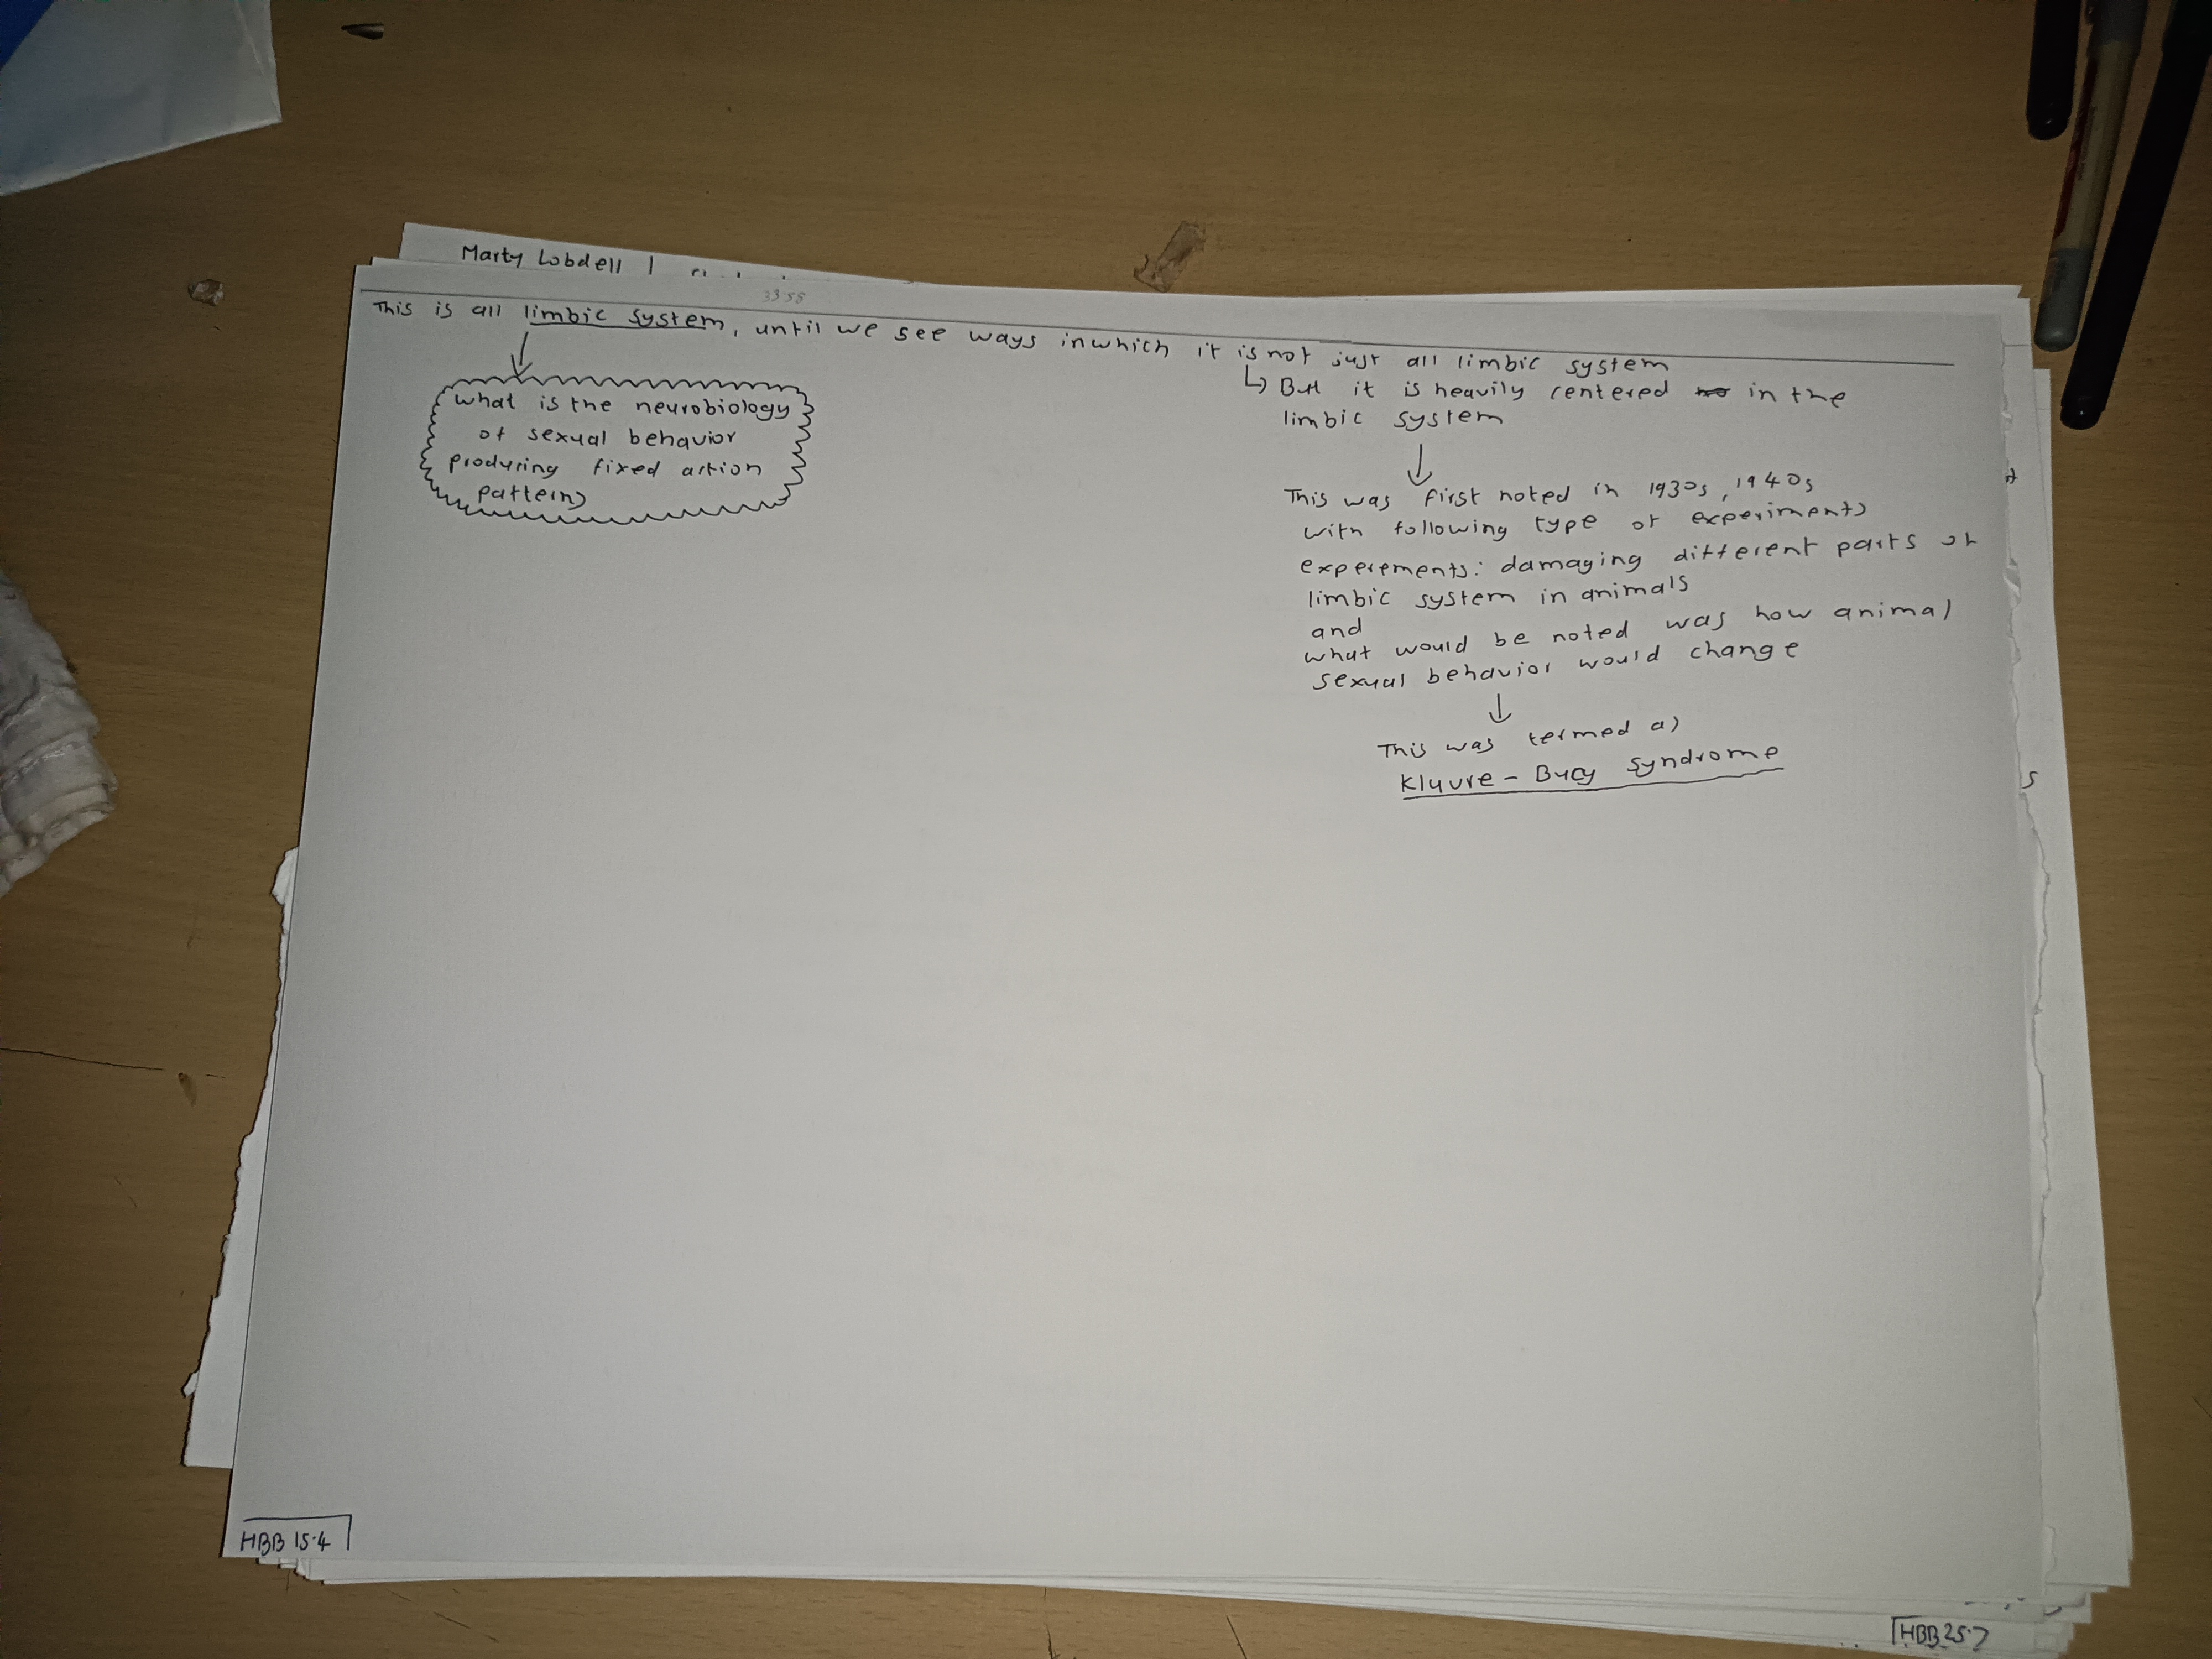 Marty Lobdell |
33:58
This is all limbic system, until we see ways inwhich it is not just all limbic system
what is the neurobiology
of sexual behavior
producing fixed action
patterns
↳ But it is heavily centered in the
limbic system
This was first noted in 1930s, 1940s
with following type of experiments
experements: damaging different parts of
limbic system in animals
and
what would be noted was how animal
sexual behavior would change
This was termed as
Kluvre - Bucy syndrome
HBB 15.4
HBB 25.7